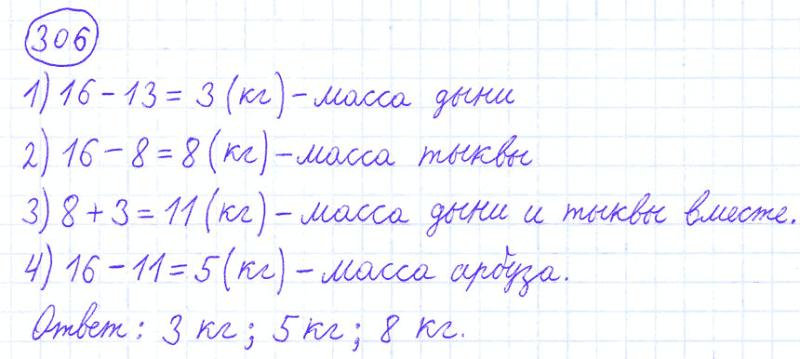 306
1) 16 - 13 = 3 (кг) - масса дыни
2) 16 - 8 = 8 (кг) - масса тыквы
3) 8 + 3 = 11 (кг) - масса дыни и тыквы вместе.
4) 16 - 11 = 5 (кг) - масса арбуза.
Ответ: 3 кг; 5 кг; 8 кг.